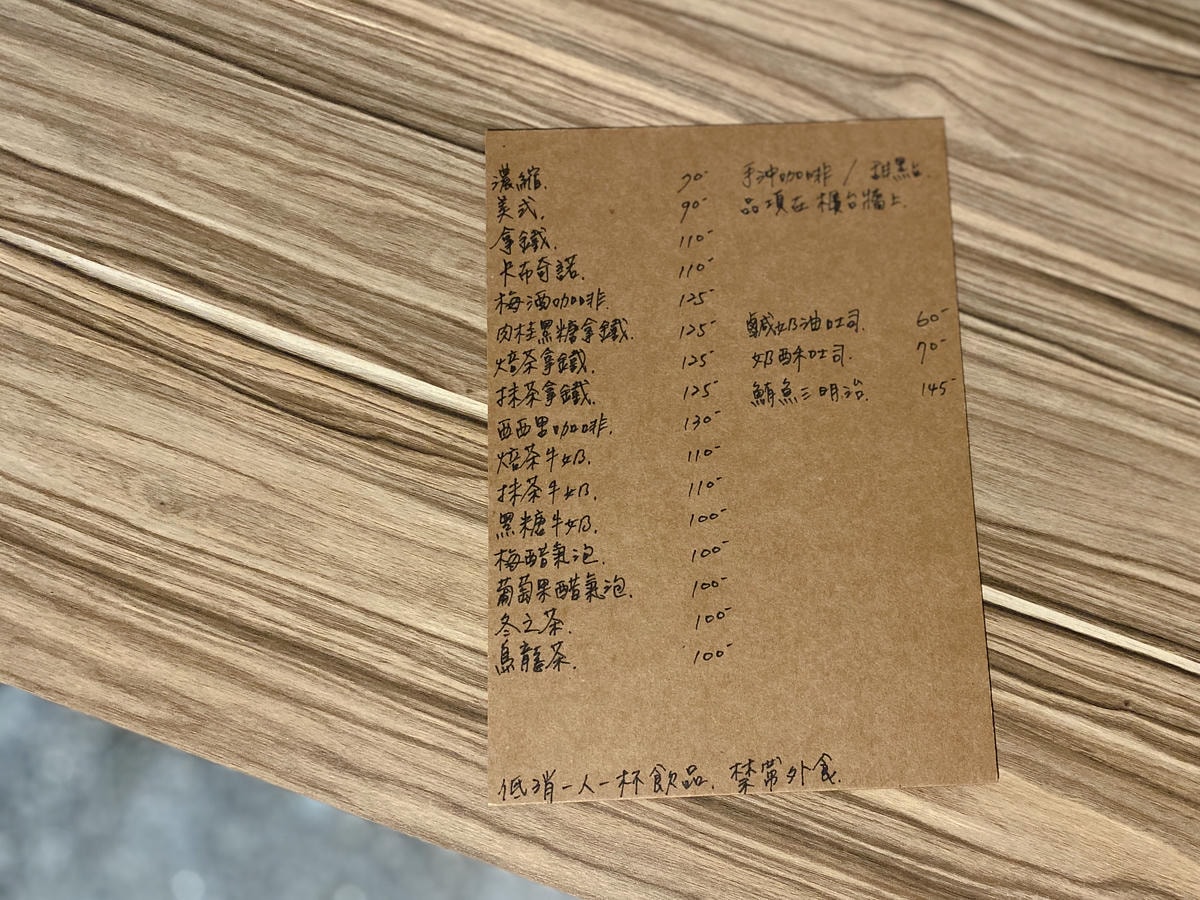 濃縮. 70-
美式. 90-
拿鐵. 110-
卡布奇諾. 110-
梅酒咖啡. 125-
肉桂黑糖拿鐵. 125-
焙茶拿鐵. 125-
抹茶拿鐵. 125-
西西里咖啡. 130-
焙茶牛奶. 110-
抹茶牛奶. 110-
黑糖牛奶. 100-
梅醋氣泡. 100-
葡萄果醋氣泡. 100-
冬之茶. 100-
烏龍茶. 100-
手沖咖啡 / 甜點.
品項在櫃台牆上.
鹹奶油吐司. 60-
奶酥吐司. 70-
鮪魚三明治. 145-
低消一人一杯飲品. 禁帶外食.